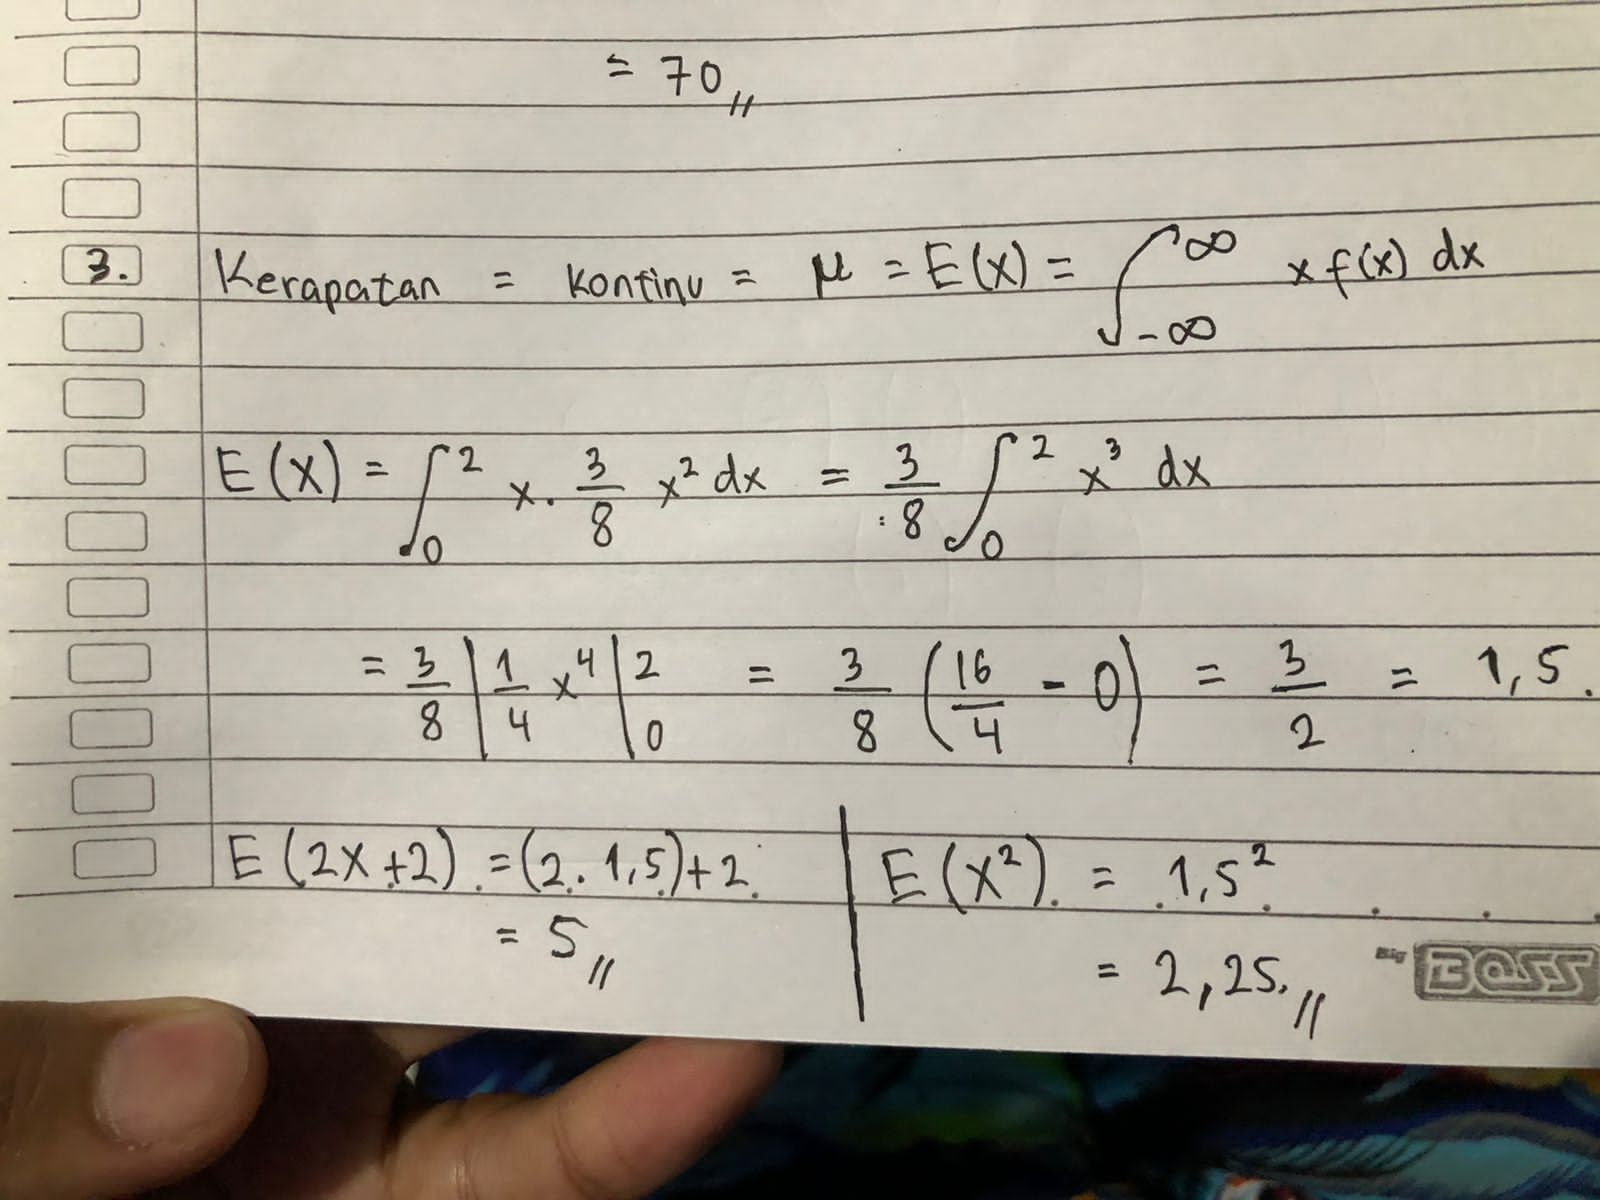 = 70,,
3. Kerapatan = kontinu = μ = E(x) = ∫_{-∞}^{∞} x f(x) dx
E(x) = ∫_{0}^{2} x. 3/8 x² dx = 3/8 ∫_{0}^{2} x³ dx
= 3/8 | 1/4 x⁴ |_{0}^{2} = 3/8 (16/4 - 0) = 3/2 = 1,5.
E(2x+2) = (2. 1,5)+2 | E(x²) = 1,5²
= 5,, | = 2,25,,
Big BOSS